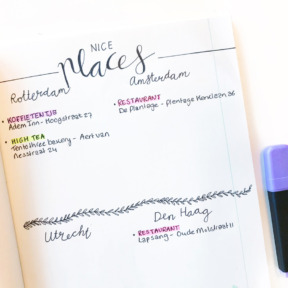 NICE
Places
Rotterdam
Amsterdam
• KOFFIETENTJE
Adem Inn - Hoogstraat 57
• HIGH TEA
Tentothree bakery - Aert van
Nesstraat 24
• RESTAURANT
De Plantage - Plantage Kerklaan 36
Utrecht
Den Haag
• RESTAURANT
Lapsang - Oude Molstraat 11